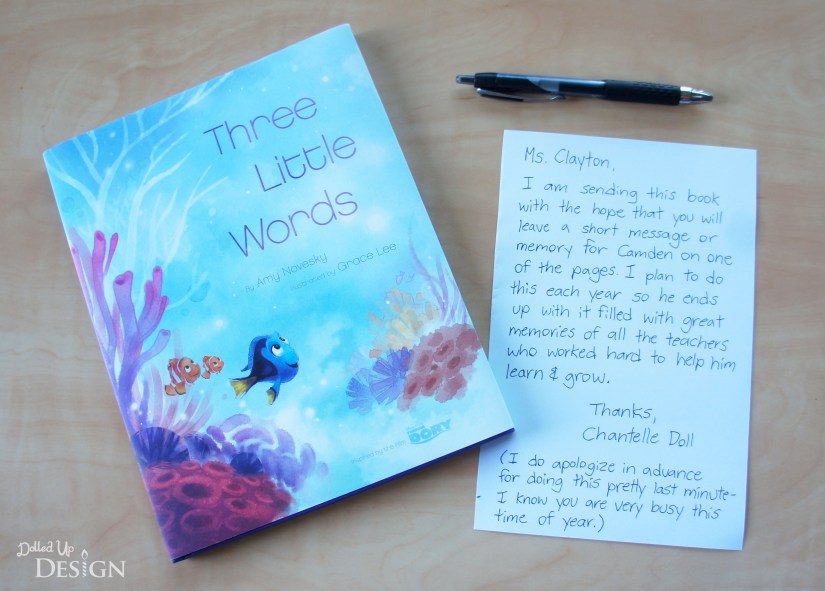 Three
Little
Words
by Amy Novesky
illustrated by Grace Lee
inspired by the film
DORY
Ms. Clayton,
I am sending this book
with the hope that you will
leave a short message or
memory for Camden on one
of the pages. I plan to do
this each year so he ends
up with it filled with great
memories of all the teachers
who worked hard to help him
learn & grow.
Thanks,
Chantelle Doll
(I do apologize in advance
for doing this pretty last minute-
I know you are very busy this
time of year.)
Dolled Up
DESIGN